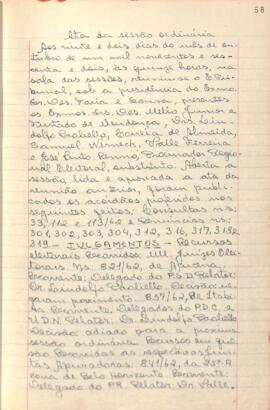 68
Ata da sessão ordinária
Aos vinte e dois dias do mês de ou-
tubro de um mil novecentos e ses-
senta e dois, às quinze horas, na
sala das sessões, reuniu-se o Tri-
bunal, sob a presidência do Exmo.
Sr. Des. Faria e Sousa, presentes
os Exmos. Srs. Des. Mello Junior e
Furtado de Mendonça, Drs. Lin-
dolfo Paoliello, Correia de Almeida,
Samuel Werneck, Valle Ferreira
e José Pinto Renno, Procurador Regio-
nal Eleitoral, substituto. Aberta a
sessão, lida e aprovada a ata da
reunião anterior, foram publi-
cados os acórdãos proferidos nos
seguintes feitos: Consultas ns.
33, 112 e 113/62 e Denúncias ns.
301, 302, 303, 304, 312, 316, 317, 318 e
319 - JULGAMENTOS - Recursos
eleitorais. Recorridos: MM. Juizes Elei-
torais. Ns: 821/62, de
Recorrente: Delegado do P.S.D. Relator:
Dr. Lindolfo Paoliello. Decisão: ne-
garam provimento. 837/62, de Itaba
Recorrente: Delegados do P.D.C. e
U.D.N. Relator: Dr. Lindolfo Paoliello
Decisão: adiado para a proxima
sessão ordinária. Recursos em que
são Recorridas as respectivas Jun-
tas Apuradoras: 841/62, da 25ª
zona de Belo Horizonte. Recorrente:
Delegado do P.R. Relator: Dr. Valle.